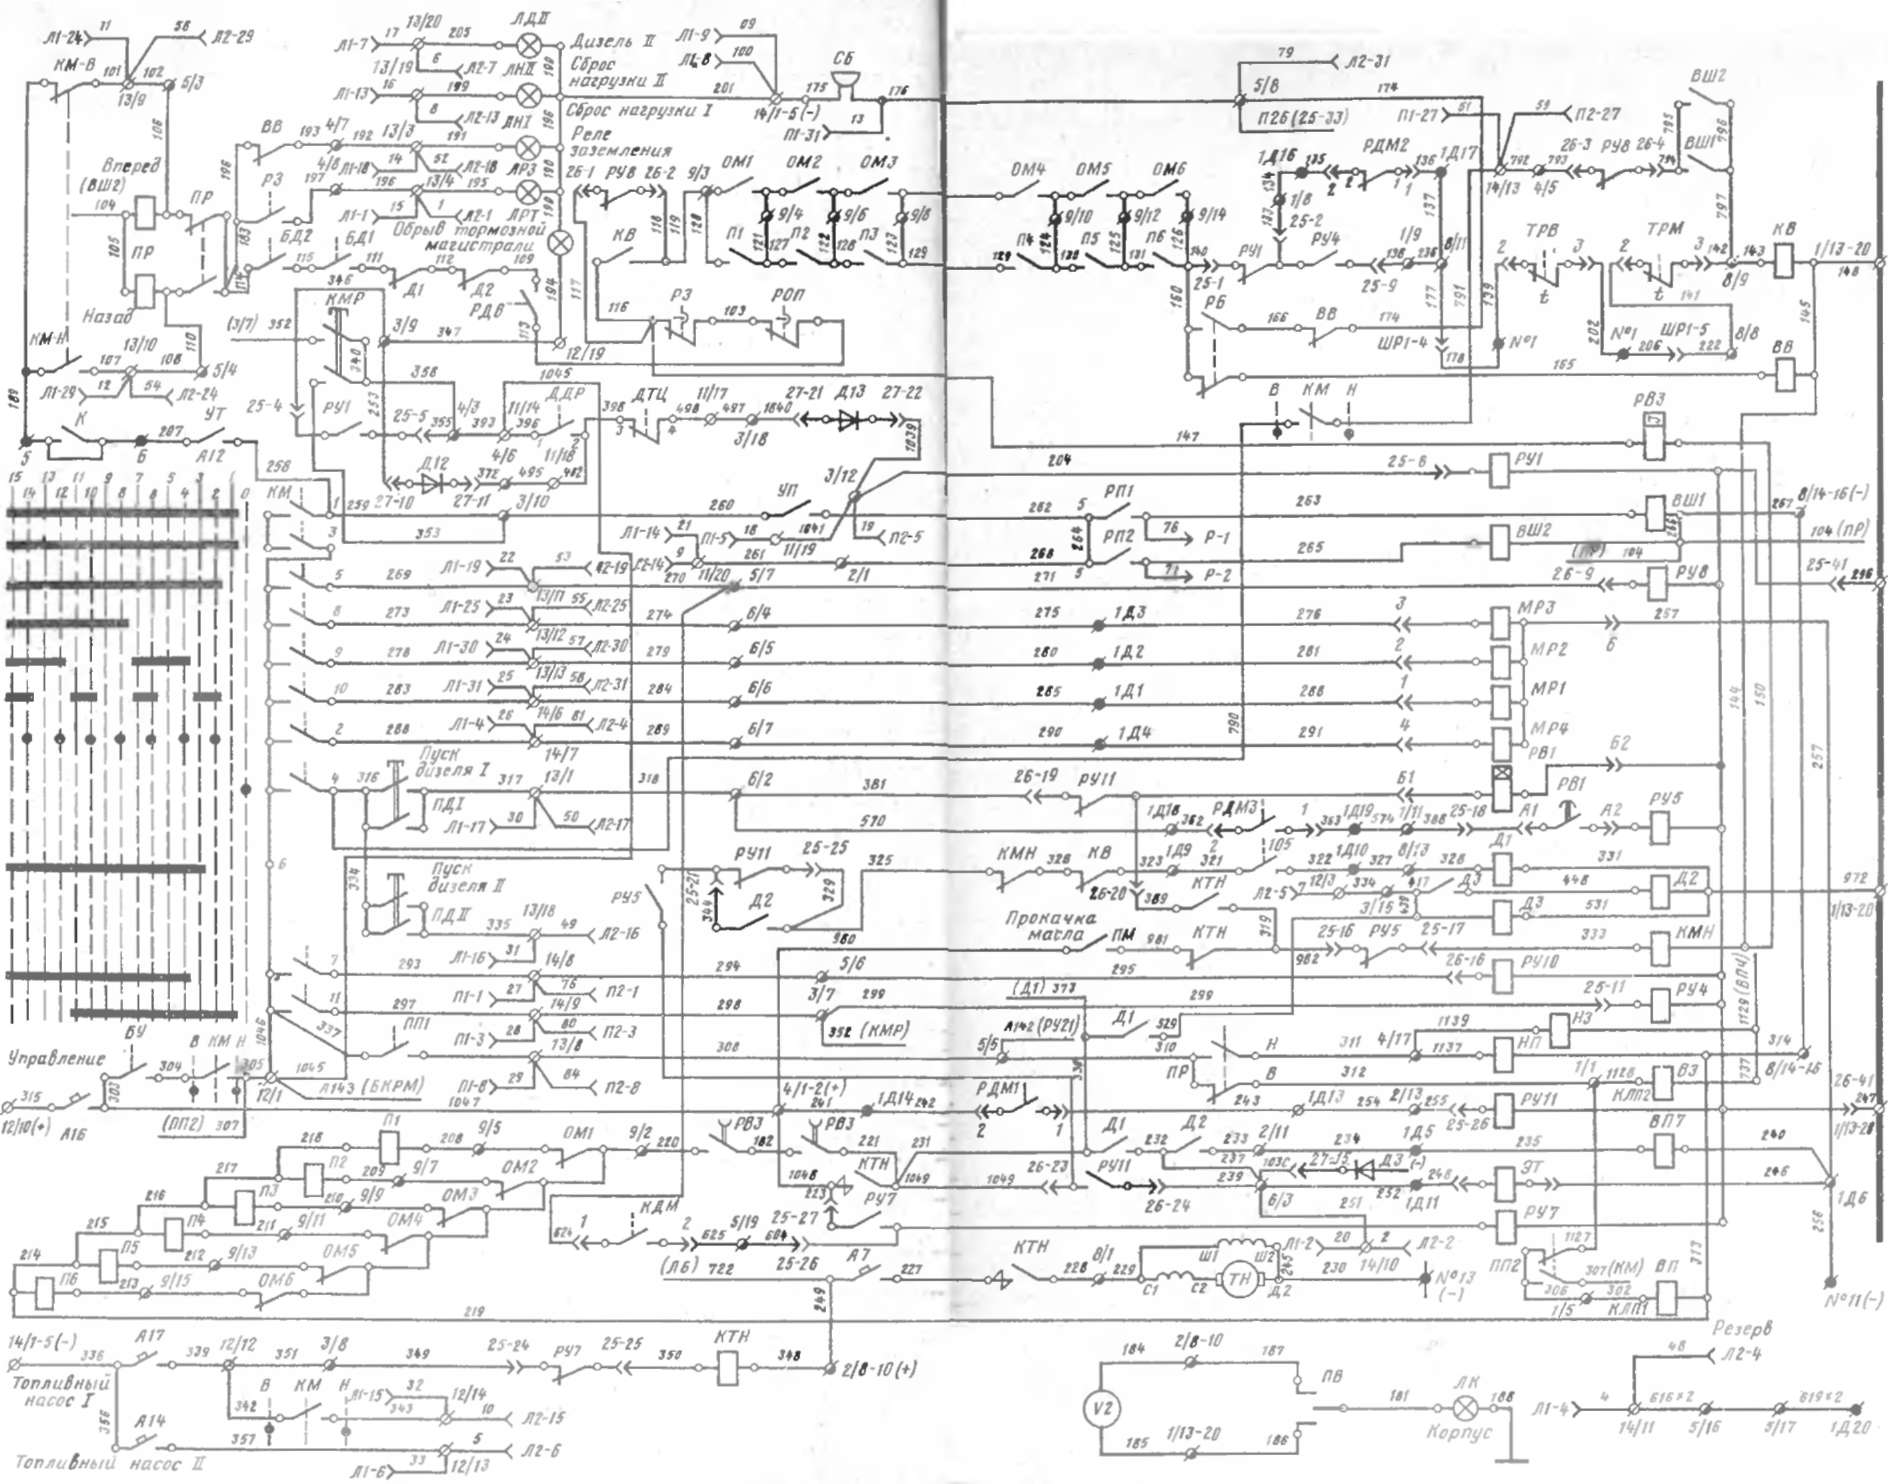 Л1-24 11 56 Л2-29
КМ-В 101 102 5/3
13/9
106
Вперед
(ВШ2)
104
ПР
105
ПР
Назад
110
КМ-Н 13/10
107 108 5/4
Л1-29 12 54 Л2-24
189
К 207 УТ
5 Б А12
258
Л1-7 17 13/20 205 ЛДII
13/19 6 Л2-7
Дизель II
Л1-13 16 199
8 Л2-13
Сброс
нагрузки II
Сброс нагрузки I
ВВ 193 4/7 192 13/3 191
4/8 Л1-18 14 52 Л2-18 ЛРЗ
Реле
заземления
196
РЗ 197 196 13/4 195
Л1-1 15 1 Л2-1 ЛРТ
Обрыв тормозной
магистрали
183
БД2 115 БД1 111 112 109
114 Д1 Д2 РДВ 113 194
346
КМР
(3/7) 352 3/9 347 12/19
340
358 1045
25-4 РУ1 253 25-5 355 4/3 393 11/14 396 ДДР
4/6 11/18
Д12 372 495 482
27-10 27-11 3/10
398 ДТЦ 498 11/17 497 1040 27-21 Д13 27-22
3/18 1039
Л1-9 09
100
201 14/1-5(-) 175 СБ 176
П1-31 13
26-1 РУ8 26-2 9/3 ОМ1 ОМ2 ОМ3
118 119 120 9/4 9/6 9/8
КВ П1 121 127 П2 122 128 П3 123 129
117 116 РЗ 103 РОП
79 Л2-31
5/8 174
П26 (25-33)
П1-27 51 59 П2-27
ВШ2
795 796
ВШ1
1Д16 135 РДМ2 136 1Д17
134 2 2 1 1
14/13 792 793 26-3 РУ8 26-4 794
4/5
1/8
25-2 137
797
ОМ4 ОМ5 ОМ6
9/10 9/12 9/14
129 П4 124 130 П5 125 131 П6 126 140 РУ1 РУ4 138 1/9 236 8/11
25-1 25-9
160 РБ 166 ВВ 174 ШР1-4 177 178
791 139
2 ТРВ 3 2 ТРМ 3 142 143 КВ 1/13-20
t t 8/9 148
141 145
№1 202 №1 206 ШР1-5 222 8/8
165 ВВ
В КМ Н
РВ3
147
204 25-6 РУ1
15 13 11 9 7 5 3 1
14 12 10 8 6 4 2 0
КМ 1 259 260 УП 262 РП1 263 ВШ1 267 8/14-16(-)
5 76 Р-1
3 353
264 РП2 265 ВШ2 266 104 (ПР)
(ПР) 104
268 5 71 Р-2
3/12
Л1-14 21 П1-5 18 1041 19 П2-5
11/19
9 261 2/1
5 269 Л1-19 22 53 270 11/20 5/7 271 26-9 РУ8 25-41 296
8 273 Л1-25 23 13/11 55 Л2-25 274 6/4 275 1Д3 276 3 МР3 257
Б
9 278 Л1-30 24 13/12 57 Л2-30 279 6/5 280 1Д2 281 2 МР2
10 283 Л1-31 25 13/13 58 Л2-31 284 6/6 285 1Д1 286 1 МР1
2 288 Л1-4 26 14/6 81 Л2-4 289 6/7 290 1Д4 291 4 МР4
14/7 790 144 150 257
Пуск
дизеля I
4 316 317 13/1 318 6/2 381 26-19 РУ11 Б1 РВ1 Б2
ПДI Л1-17 30 50 Л2-17
570 1Д18 362 РДМ3 1 363 1Д19 574 1/11 388 25-18 А1 РВ1 А2 РУ5
2
6
334
Пуск
дизеля II
ПДII 335 13/18 49 Л2-16
Л1-16 31
РУ5 25-21 344 РУ11 25-25 329 325
Д2
КМН 326 КВ 323 1Д9 321 105 322 1Д10 327 8/13 328 Д1 331
26-20 389 КТН Л2-5 7 12/3 334 417 Д3 448 Д2 972
3/15 Д3 531 1/13-20
319
Прокачка
масла ПМ 981 КТН
980 982 25-16 РУ5 25-17 333 КМН
7 293 14/8 294 5/6 295 26-16 РУ10
П1-1 27 76 П2-1
11 297 14/9 298 3/7 299 299 25-11 РУ4
П1-3 28 80 П2-3 352 (КМР)
(Д1) 373
337 ПП1 308 5/5 А142 (РУ21) Д1 529
П1-8 29 13/8 84 П2-8
310 Н 311 4/17 1139 НЗ
1137 НП
1129 (ВПЧ)
314
8/14-16
ПР В 312 1/1 1128 ВЗ 737
КЛП2
Управление
БУ
В КМ Н
304 305
315 303 1046 12/1 1045 А143 (БКРМ)
12/10(+) А16 (ПП2) 307 1047
4/1-2(+) 241 1Д14 242 РДМ1 243 1Д13 254 2/13 255 РУ11 26-41 247
2 1 25-26 1/13-20
218 П1 208 9/5 ОМ1 9/2 220 РВ3 182 РВ3 221 231 Д1 232 Д2 233 2/11 234 1Д5 235 ВП7 240
217 П2 209 9/7 ОМ2
237 27-15 Д3 (-)
216 П3 210 9/9 ОМ3 1048 КТН 1049 1049 26-23 РУ11 239 6/3 252 1Д11 248 ЭТ 246
223 РУ7 26-24 251 1Д6
215 П4 211 9/11 ОМ4
624 1 КДМ 2 625 5/19 604 25-27 РУ7
25-26
214 П5 212 9/13 ОМ5
П6 213 9/15 ОМ6
(Л6) 722 А7 227 КТН 228 8/1 229 С1 С2 ТН Д2 230 №13
(-)
Ш1 Ш2 245
Л1-2 20 2 Л2-2
14/10
ПП2 1127 307(КМ) ВП 313
306 302
1/5 КЛП1
256
№11(-)
249
219
14/1-5(-) А17 12/12 3/8 25-24 РУ7 25-25 КТН
336 339 351 349 350 348 2/8-10(+)
Топливный
насос I
356 А14 В КМ Н Л1-15 32 12/14
342 343 10 Л2-15
357 5 Л2-6
Топливный насос II
Л1-6 33 12/13
184 2/8-10 187 ПВ
V2 181 ЛК 188
Корпус
185 1/13-20 186
Резерв
48 Л2-4
Л1-4 4 616×2 619×2
14/11 5/16 5/17 1Д20